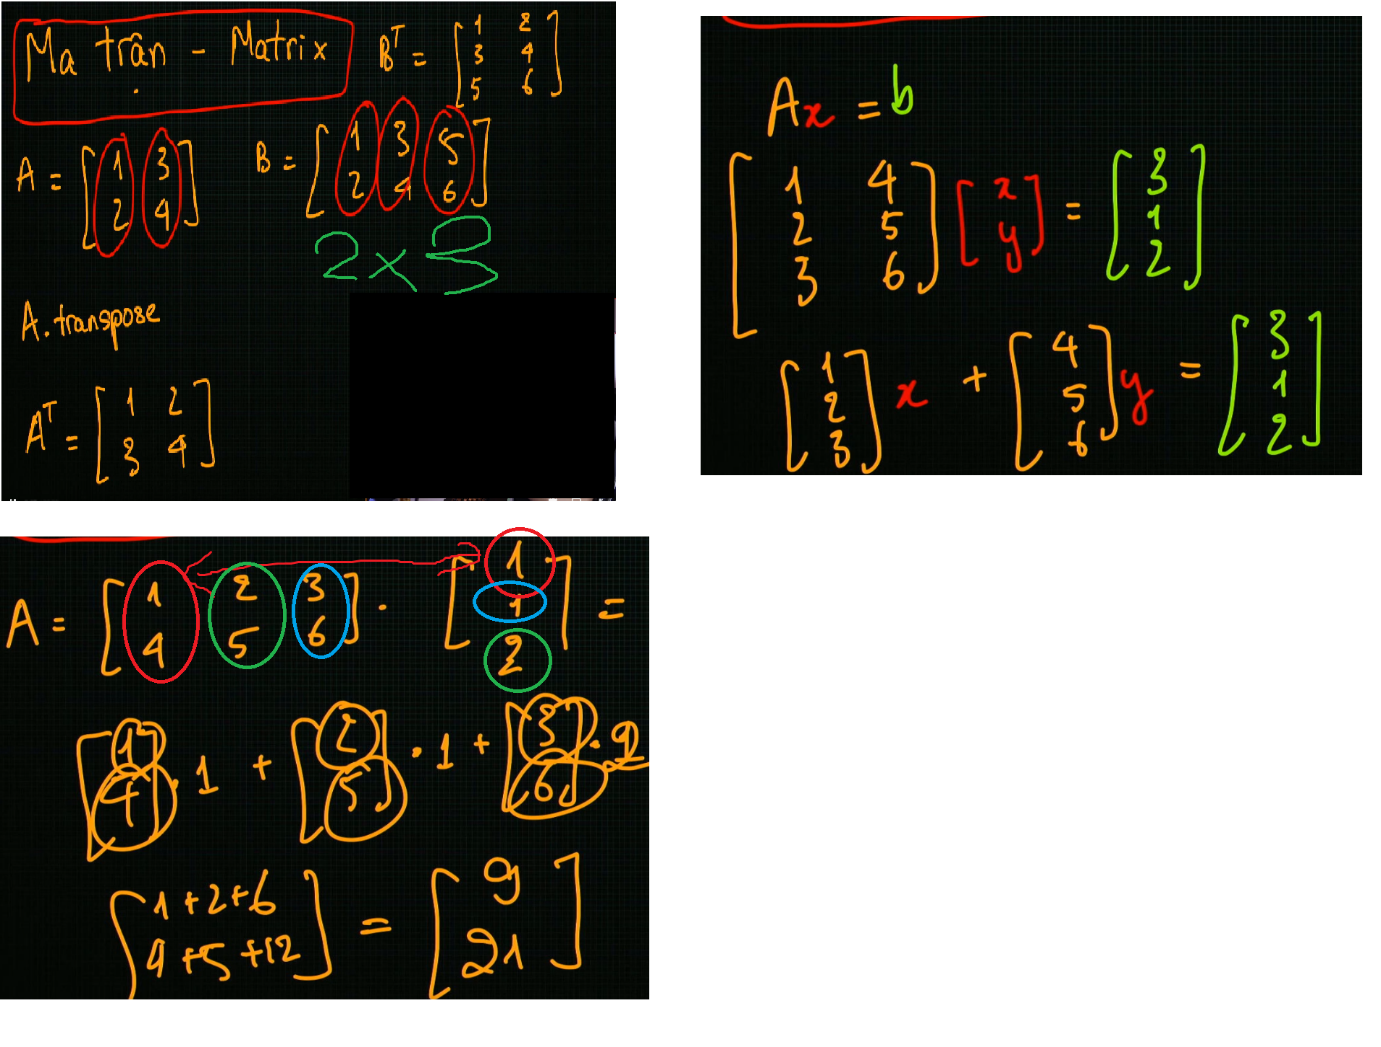 Ma trận - Matrix
B^T = [1 2; 3 4; 5 6]
A = [1 3; 2 4]
B = [1 3 5; 2 4 6]
2x3
A.transpose
A^T = [1 2; 3 4]
Ax = b
[1 4; 2 5; 3 6] [x; y] = [3; 1; 2]
[1; 2; 3] x + [4; 5; 6] y = [3; 1; 2]
A = [1 2 3; 4 5 6] . [1; 1; 2] =
[1; 4] . 1 + [2; 5] . 1 + [3; 6] . 2
[1+2+6; 4+5+12] = [9; 21]